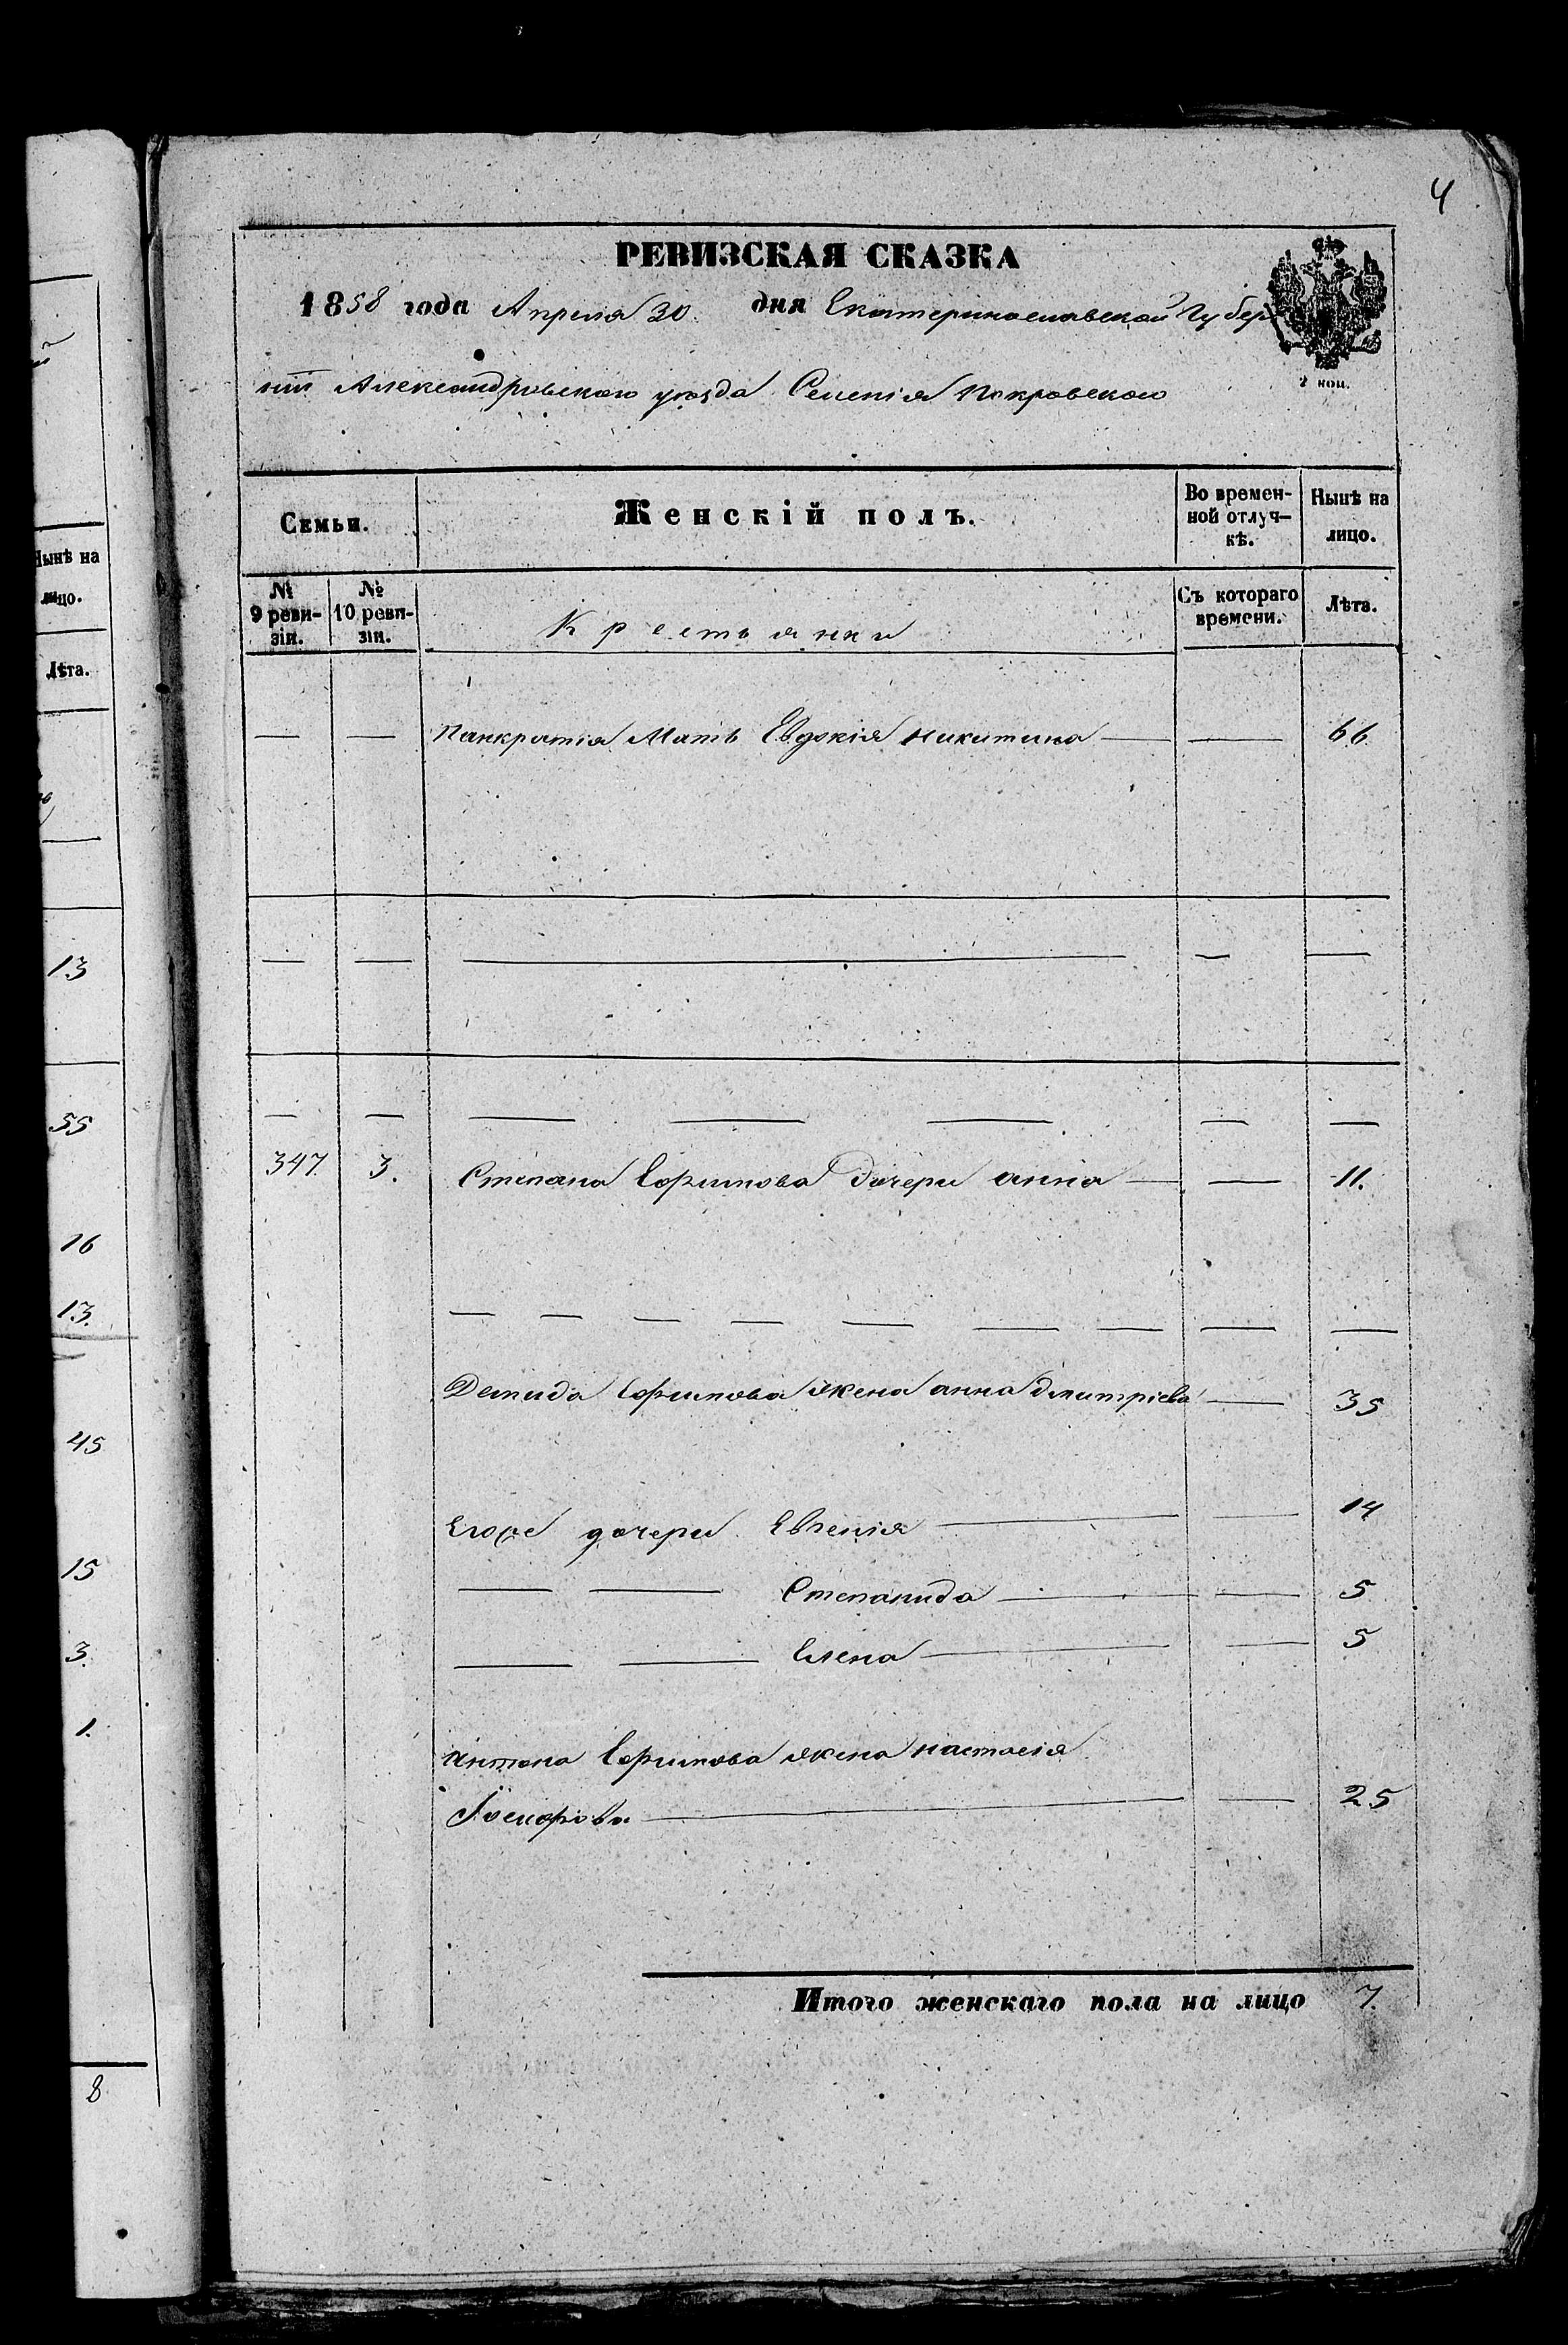 4
РЕВИЗСКАЯ СКАЗКА
1858 года Апреля 30. дня Екатеринославской Губер
ніи Александровского уезда Селенія Покровского
2 коп.
Семьи. Женскій полъ. Во времен- Нынѣ на
ной отлуч- лицо.
кѣ.
№ № Съ котораго Лѣта.
9 реви- 10 реви- времени.
зіи. зіи.
Крестьянки
— — Панкратія Мать Евдокія Никитина — — 66
— — — — —
— — — — — — —
347 3. Степана Ефимова дочери анна — — 11.
— — — — — — — — —
Демида Ефимова жена анна дмитріева — 35
Егоже дочери Евгенія — — 14
— — Степанида — — 5
— — Елена — — 5
Антона Ефимова жена настасія
— — 25
Итого женскаго пола на лицо 7.
Нынѣ на
лицо.
Лѣта.
13
55
16
13.
45
15
3.
1.
8